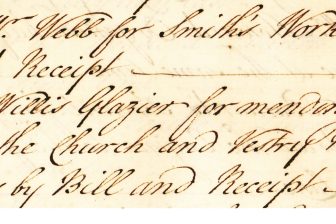 Mr. Webb for Smith's Work
Receipt
Willis Glazier for mendin
the Church and Vestry
by Bill and Receipt